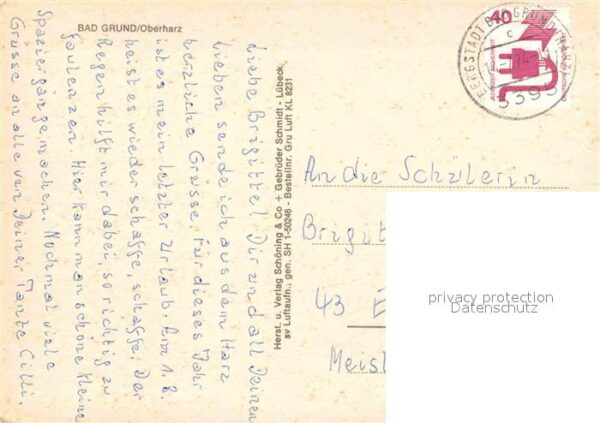 BAD GRUND/Oberharz
Liebe Brigitte! Dir und all Deinen
Lieben sende ich aus dem Harz
herzliche Grüsse. Für dieses Jahr
ist es mein letzter Urlaub. Am 1.8.
heist es wieder schaffe, schaffe. Der
Regen hilft mir dabei, so richtig zu
faulenzen. Hier kann man schöne kleine
Spaziergänge machen. Nochmal viele
Grüsse an alle von Deiner Tante Cilli.
Herst. u. Verlag Schöning & Co + Gebrüder Schmidt - Lübeck
sv Luftaufn., gen. SH 1-50246 - Bestellnr. Gru Luft KL 8231
40
BERGSTADT BAD GRUND HARZ
c
An die Schülerin
Brigit
43 E
Meist
privacy protection
Datenschutz